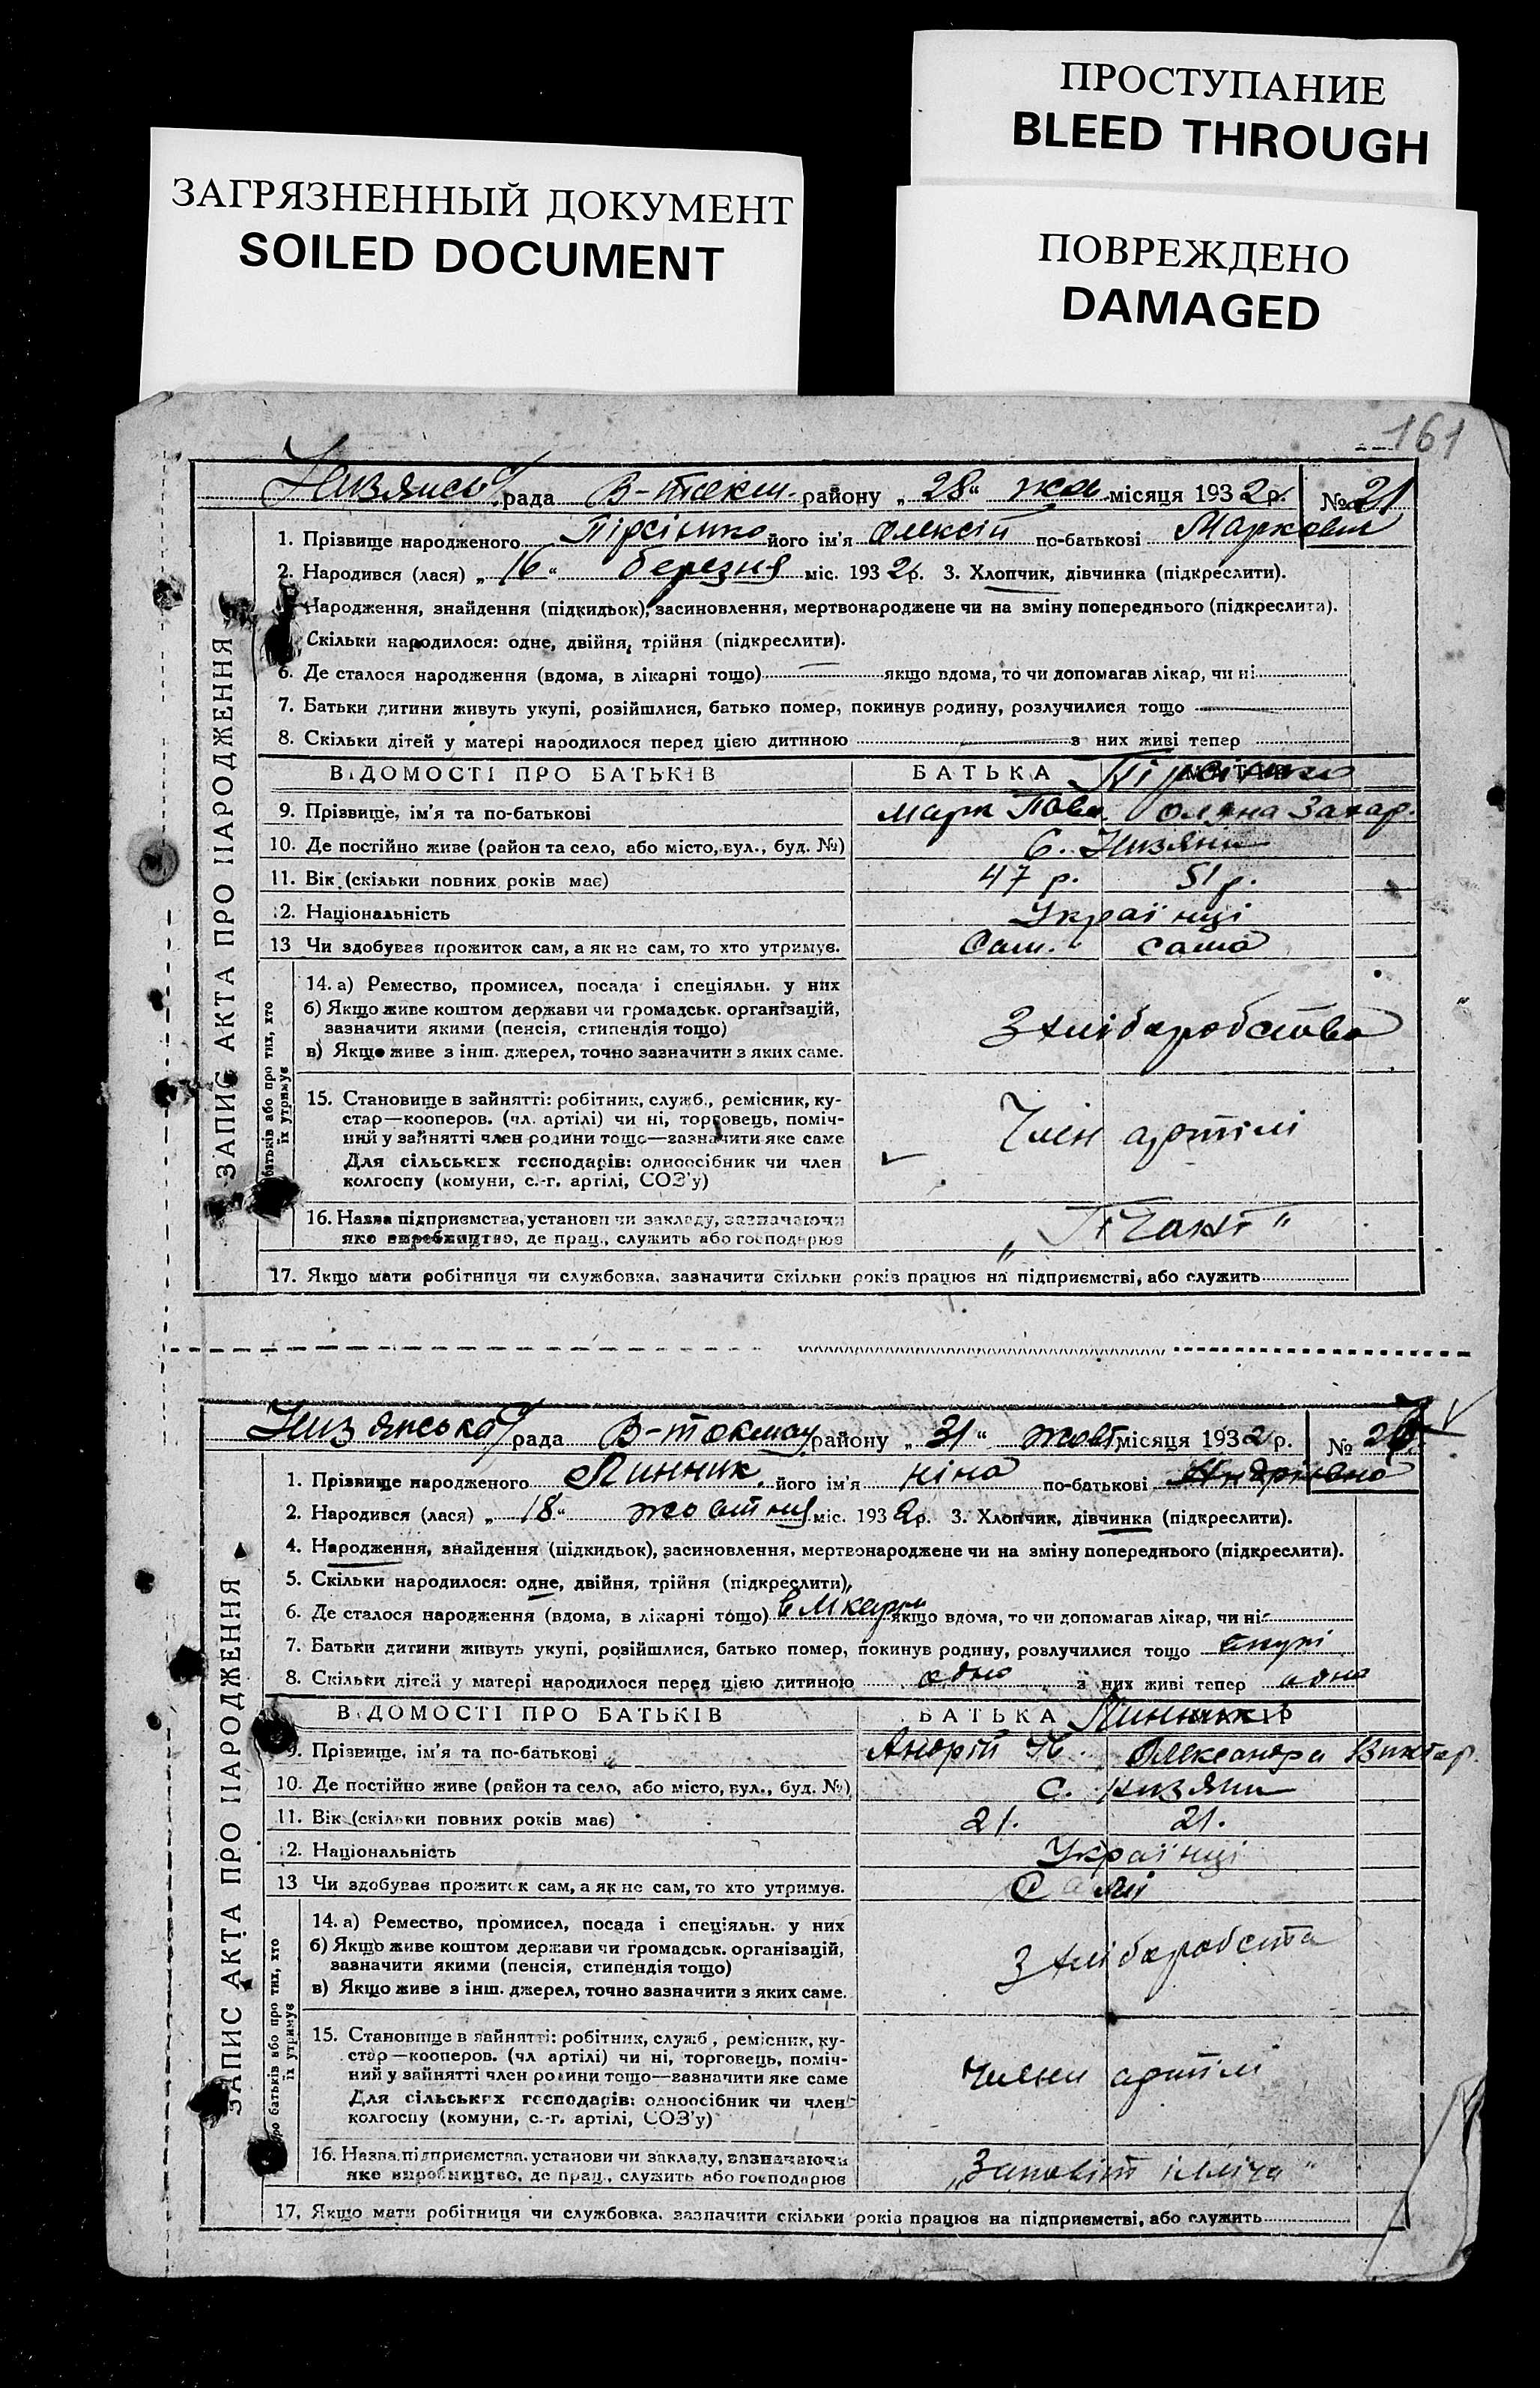 ПРОСТУПАНИЕ
BLEED THROUGH
ЗАГРЯЗНЕННЫЙ ДОКУМЕНТ
SOILED DOCUMENT
ПОВРЕЖДЕНО
DAMAGED
161
рада В-токм. району „28“ жов місяця 1932 р. № 21
1. Прізвище народженого його ім'я Олексій по-батькові Маркович
2. Народився (лася) „16“ березня міс. 1932 р. 3. Хлопчик, дівчинка (підкреслити).
Народження, знайдення (підкидьок), засиновлення, мертвонароджене чи на зміну попереднього (підкреслити).
Скільки народилося: одне, двійня, трійня (підкреслити).
6. Де сталося народження (вдома, в лікарні тощо) якщо вдома, то чи допомагав лікар, чи ні
7. Батьки дитини живуть укупі, розійшлися, батько помер, покинув родину, розлучилися тощо
8. Скільки дітей у матері народилося перед цією дитиною з них живі тепер
ВІДОМОСТІ ПРО БАТЬКІВ БАТЬКА
9. Прізвище, ім'я та по-батькові Марк Павл. Оляна Захар.
10. Де постійно живе (район та село, або місто, вул., буд. №) С. Низяни
11. Вік (скільки повних років має) 47 р. 51 р.
12. Національність Українці
13 Чи здобував прожиток сам, а як не сам, то хто утримує. Сам. сама
14. а) Ремество, промисел, посада і спеціяльн. у них
б) Якщо живе коштом держави чи громадськ. організацій,
зазначити якими (пенсія, стипендія тощо)
в) Якщо живе з інш. джерел, точно зазначити з яких саме.
З хліборобства
15. Становище в зайнятті: робітник, служб., ремісник, ку-
стар—кооперов. (чл. артілі) чи ні, торговець, поміч-
ний у зайнятті член родини тощо—зазначити яке саме
Для сільських господарів: одноосібник чи член
колгоспу (комуни, с.-г. артілі, СОЗ'у)
Член артілі
16. Назва підприємства, установи чи закладу, зазначаючи
яке виробництво, де прац., служить або господарює
17. Якщо мати робітниця чи службовка, зазначити скільки років працює на підприємстві, або служить
ЗАПИС АКТА ПРО НАРОДЖЕННЯ
батьків або про тих, хто
їх утримує
Низянська с/рада В-токмац району „31“ жовт. місяця 1932 р. №
1. Прізвище народженого Линник його ім'я Ніна по-батькові Андріївна
2. Народився (лася) „18“ жовтня міс. 1932 р. 3. Хлопчик, дівчинка (підкреслити).
4. Народження, знайдення (підкидьок), засиновлення, мертвонароджене чи на зміну попереднього (підкреслити).
5. Скільки народилося: одне, двійня, трійня (підкреслити).
6. Де сталося народження (вдома, в лікарні тощо) в лікарні якщо вдома, то чи допомагав лікар, чи ні
7. Батьки дитини живуть укупі, розійшлися, батько помер, покинув родину, розлучилися тощо вкупі
8. Скільки дітей у матері народилося перед цією дитиною одно з них живі тепер одно
ВІДОМОСТІ ПРО БАТЬКІВ БАТЬКА Линник
9. Прізвище, ім'я та по-батькові Андрій Олександра Виктор.
10. Де постійно живе (район та село, або місто, вул., буд. №) С. Низяни
11. Вік (скільки повних років має) 21. 21.
12. Національність Українці
13 Чи здобував прожиток сам, а як не сам, то хто утримує. Самі
14. а) Ремество, промисел, посада і спеціяльн. у них
б) Якщо живе коштом держави чи громадськ. організацій,
зазначити якими (пенсія, стипендія тощо)
в) Якщо живе з інш. джерел, точно зазначити з яких саме.
З хліборобста
15. Становище в зайнятті: робітник, служб., ремісник, ку-
стар—кооперов. (чл артілі) чи ні, торговець, поміч-
ний у зайнятті член родини тощо—зазначити яке саме
Для сільських господарів: одноосібник чи член
колгоспу (комуни, с.-г. артілі, СОЗ'у)
Члени артілі
16. Назва підприємства, установи чи закладу, зазначаючи
яке виробництво, де прац., служить або господарює
„Заповіт Ілліча“
17. Якщо мати робітниця чи службовка, зазначити скільки років працює на підприємстві, або служить
ЗАПИС АКТА ПРО НАРОДЖЕННЯ
про батьків або про тих, хто
їх утримує